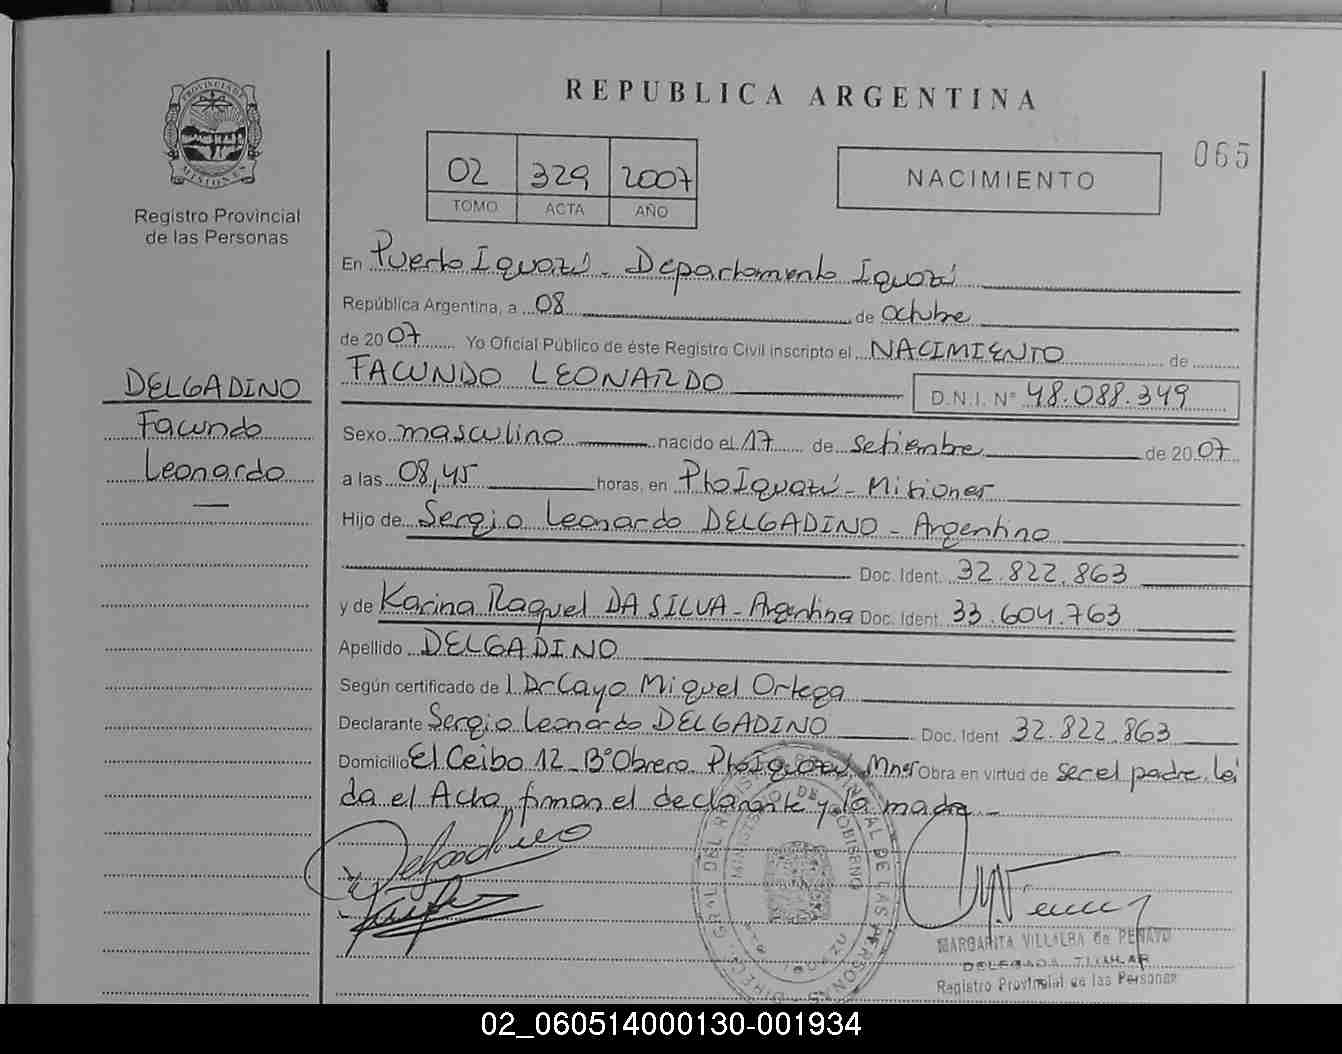 REPUBLICA ARGENTINA
065
PROVINCIA DE
MISIONES
Registro Provincial
de las Personas
02 329 2007
TOMO ACTA AÑO
NACIMIENTO
En Puerto Iguazú - Departamento Iguazú
República Argentina, a 08 de octubre
de 2007 Yo Oficial Público de éste Registro Civil inscripto el NACIMIENTO de
FACUNDO LEONARDO D.N.I. N° 48.088.349
DELGADINO
Facundo
Leonardo
Sexo masculino nacido el 17 de setiembre de 2007
a las 08,45 horas, en Pto Iguazú - Misiones
Hijo de Sergio Leonardo DELGADINO - Argentino
Doc. Ident. 32.822.863
y de Karina Raquel DA SILVA - Argentina Doc. Ident. 33.604.763
Apellido DELGADINO
Según certificado de l Dr Cayo Miguel Ortega
Declarante Sergio Leonardo DELGADINO Doc. Ident 32.822.863
Domicilio El Ceibo 12 - B° Obrero Pto Iguazú Mnes Obra en virtud de ser el padre. Lei
da el Acta, firman el declarante y la madre -
Delgadino
MARGARITA VILLALBA de PENAYO
DELEGADA TITULAR
Registro Provincial de las Personas
02_060514000130-001934